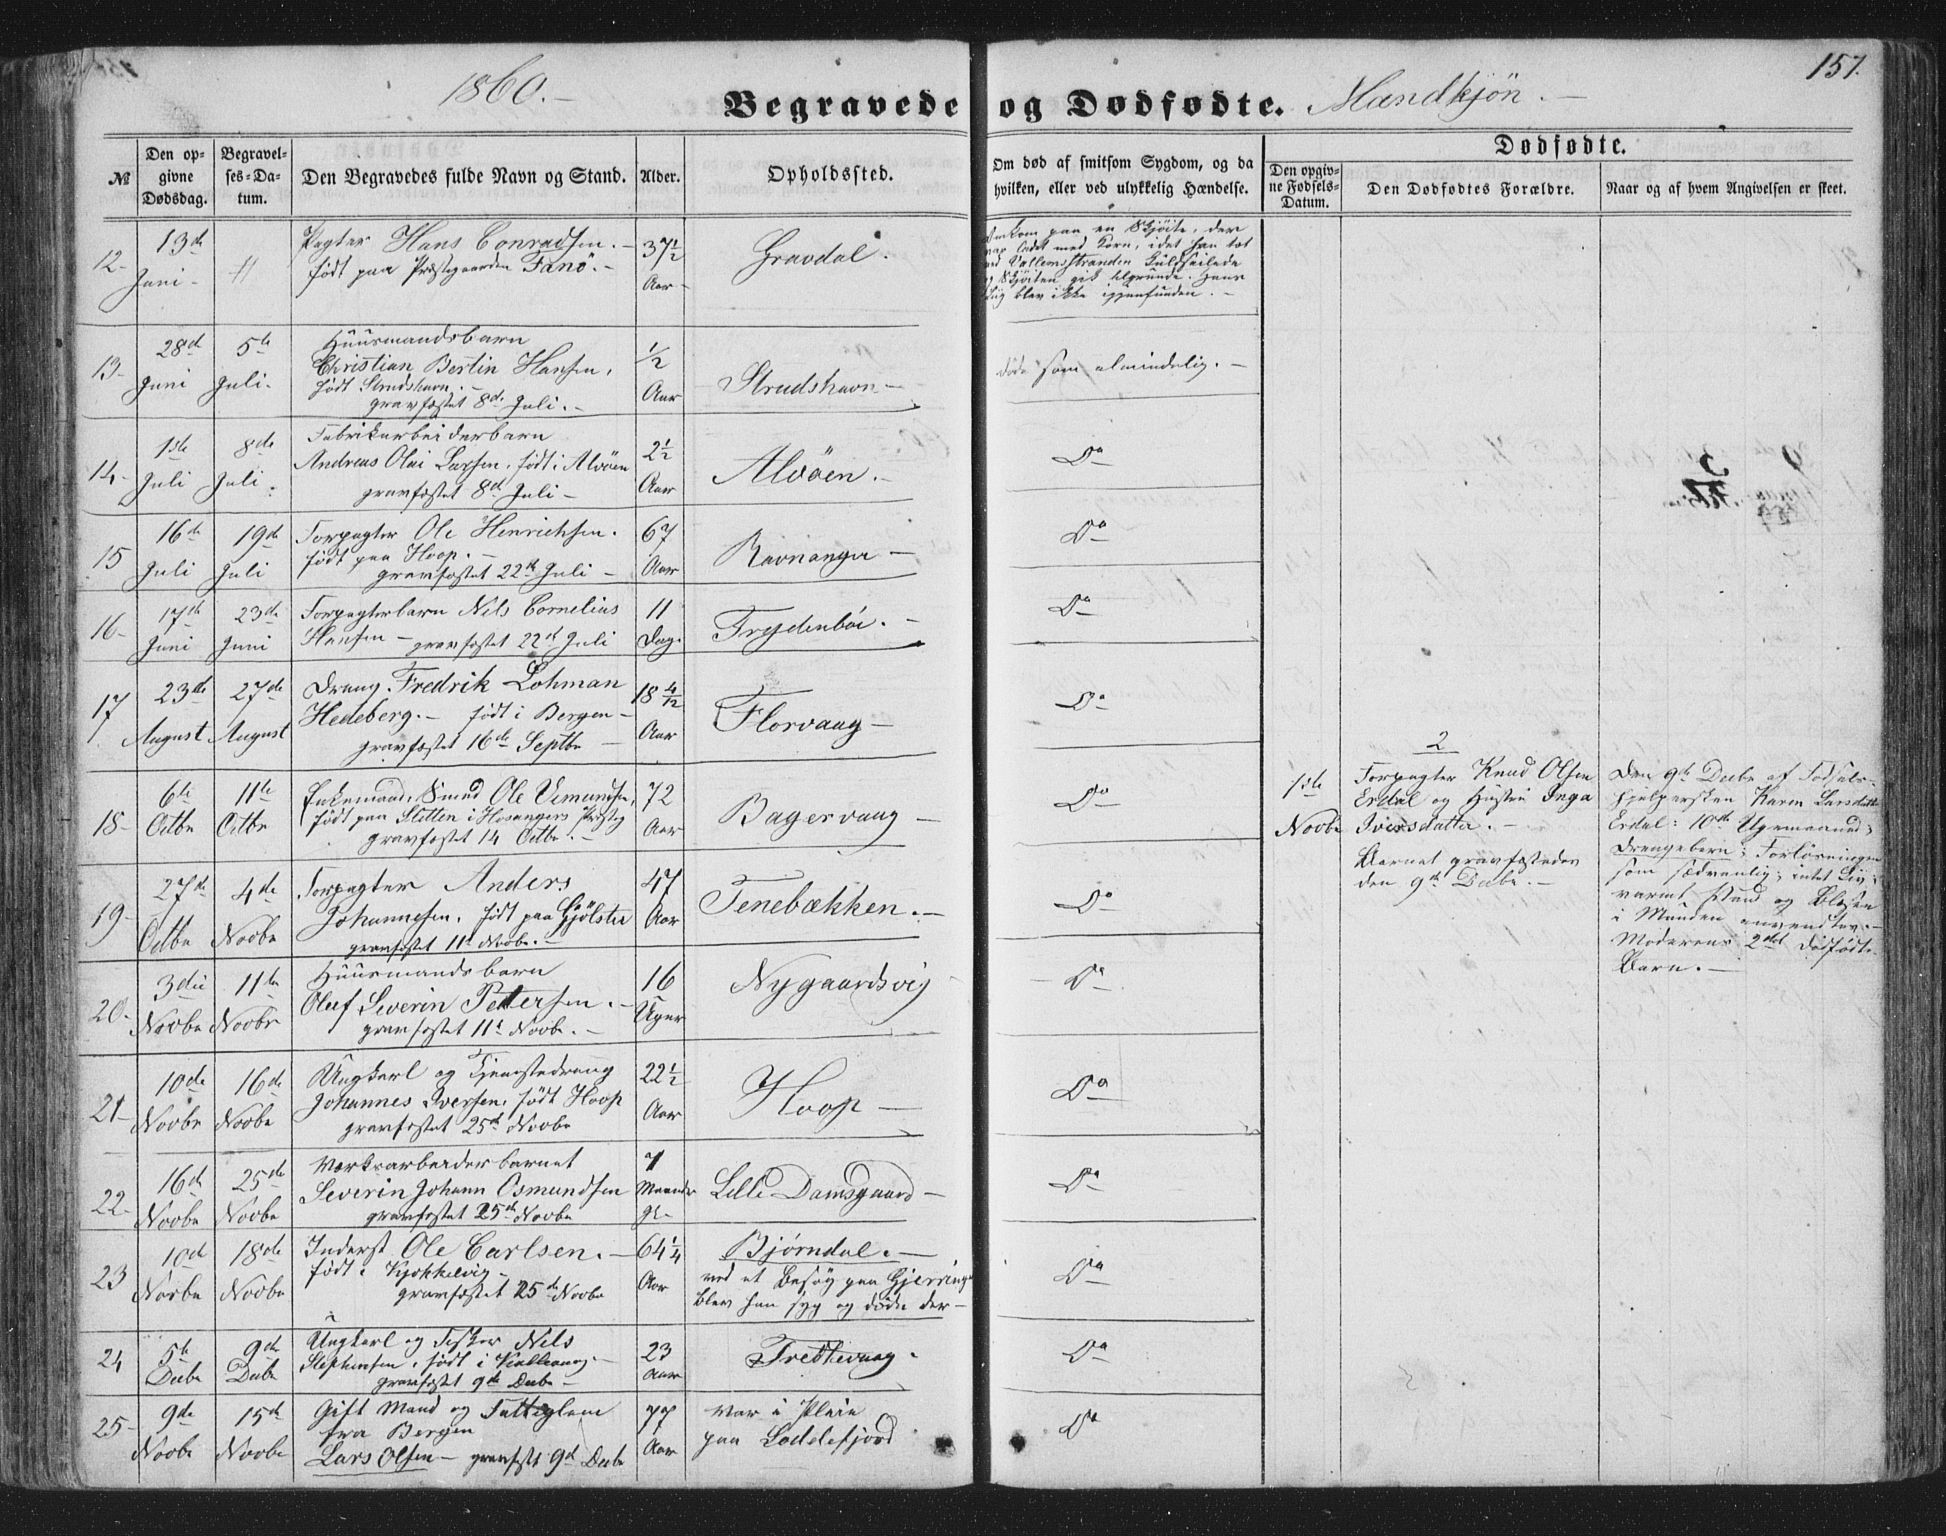 1860.-
Begravede og Dødfødte. Mandkjön.-
157.
№
Den opgivne Dødsdag.
Begravelses-Datum.
Den Begravedes fulde Navn og Stand.
Alder.
Opholdssted.
Om død af smitsom Sygdom, og da
hvilken, eller ved ulykkelig Hændelse.
Dødfødte.
Den opgivne Fødsels-Datum.
Den Dødfødtes Forældre.
Naar og af hvem Angivelsen er skeet.
12-
13de
Juni-
"
Pagter Hans Conradsen.-
født paa Præstegaarden Fanø.-
37½
Aar-
Gravdal.
Omkom paa en Skjöite, der
var ladet med Korn, idet han tæt
ved Vallemstranden kuldseilede
og Skjöiten gik tilgrunde. Hans
Liig blev ikke igjenfunden.-
13-
28de
Juni
5te
Juli-
Huusmandsbarn
Christian Bertin Hansen,
født Strudshavn.-
gravfæstet 8de Juli.-
½
Aar
Strudshavn-
døde som almindelig.-
14-
1ste
Juli
8de
Juli.
Fabrikarbeiderbarn
Andreas Olai Larsen, født i Alvöen
gravfæstet 8de Juli-
2½
Aar
Alvöen.-
Do
15
16de
Juli
19de
Juli
Forpagter Ole Henrichsen.
født paa Hoop.-
gravfæstet 22de Juli-
67
Aar
Ravnanger-
Do
16-
17de
Juni
23de
Juni
Forpagterbarn Nils Cornelius
Hansen- gravfæstet 22de Juli
11
Dag.
Frydenböe.-
Do
17
23de
August
27de
August
Dreng Fredrik Lohman
Hedeberg.- født i Bergen-
gravfæstet 16de Septbr-
18 4/12
Aar
Florvaag-
Do
18-
6te
Octbr
11te
Octbr
Enkemand, Smed Ole Vemundsen,
født paa Sletten i Hosangers Præstg
gravfæstet 14 Octbr.-
72
Aar
Bagervaag-
Do
1ste
Novbr
2
Forpagter Knud Olsen
Erdal og Hustru Inga
Iversdatter.-
Barnet gravfæstedes
den 9de Decbr.-
Den 9de Decbr af Fødsels-
hjelpersken Karen Larsdatter
Erdal: 10de Ugemaaned;
Drengebarn; Forløsningen
som sædvanlig; intet Liv;
varmt Vand og Blæsen
i Munden anvendtes.-
Moderens 2det dødfødte
Barn.-
19-
27de
Octbr
4de
Novbr
Forpagter Anders
Johannesen, født paa Gjölster
gravfæstet 11te Novbr.-
47
Aar
Tenebækken.-
Do
20-
3die
Novbr
11te
Novbr
Huusmandsbarn
Oluf Severin Pettersen.-
gravfæstet 11te Novbr.-
16
Uger
Nygaardsvig
Do
21-
10de
Novbr
16de
Novbr
Ungkarl og Tjenestedreng
Johannes Iversen, født Hoop
gravfæstet 25de Novbr
22½
Aar
Hoop-
Do
22-
16de
Novbr
25de
Novbr
Værksarbeiderbarnet
Severin Johann Osmundsen
gravfæstet 25de Novbr
7
Maaneder
gl.-
Lille Damsgaard-
Do
23
10de
Novbr
18de
Novbr
Inderst Ole Carlsen.-
født i Kjøkkelvig-
gravfæstet 25de Novbr
64¼
Aar
Bjørndal.-
ved et Besøg paa Gjerringe
blev han syg og døde der-
Do
24
5te
Decbr
9de
Decbr
Ungkarl og Fisker Nils
Stephensen, født i
gravfæstet 9de Decbr-
23
Aar
Trettevaag.
Do
25-
9de
Novbr
15de
Novbr
Gift Mand og Fattiglem
fra Bergen
Lars Olsen- gravfæstet 9de Decbr
77
Aar
var i Pleie
paa Loddefjord
Do